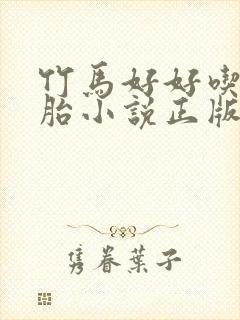 竹馬好好喫
胎小說正版
隽眷葉子